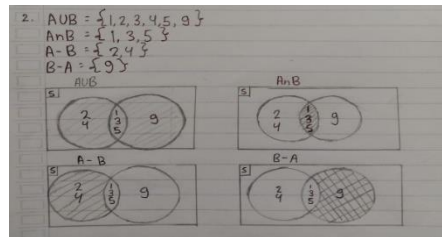 2. AUB = {1,2,3,4,5,9}
AnB = {1,3,5}
A-B = {2,4}
B-A = {9}
AUB
AnB
S
2
4
1
3
5
9
S
2
4
1
3
5
9
A-B
B-A
S
2
4
1
3
5
9
S
2
4
1
3
5
9